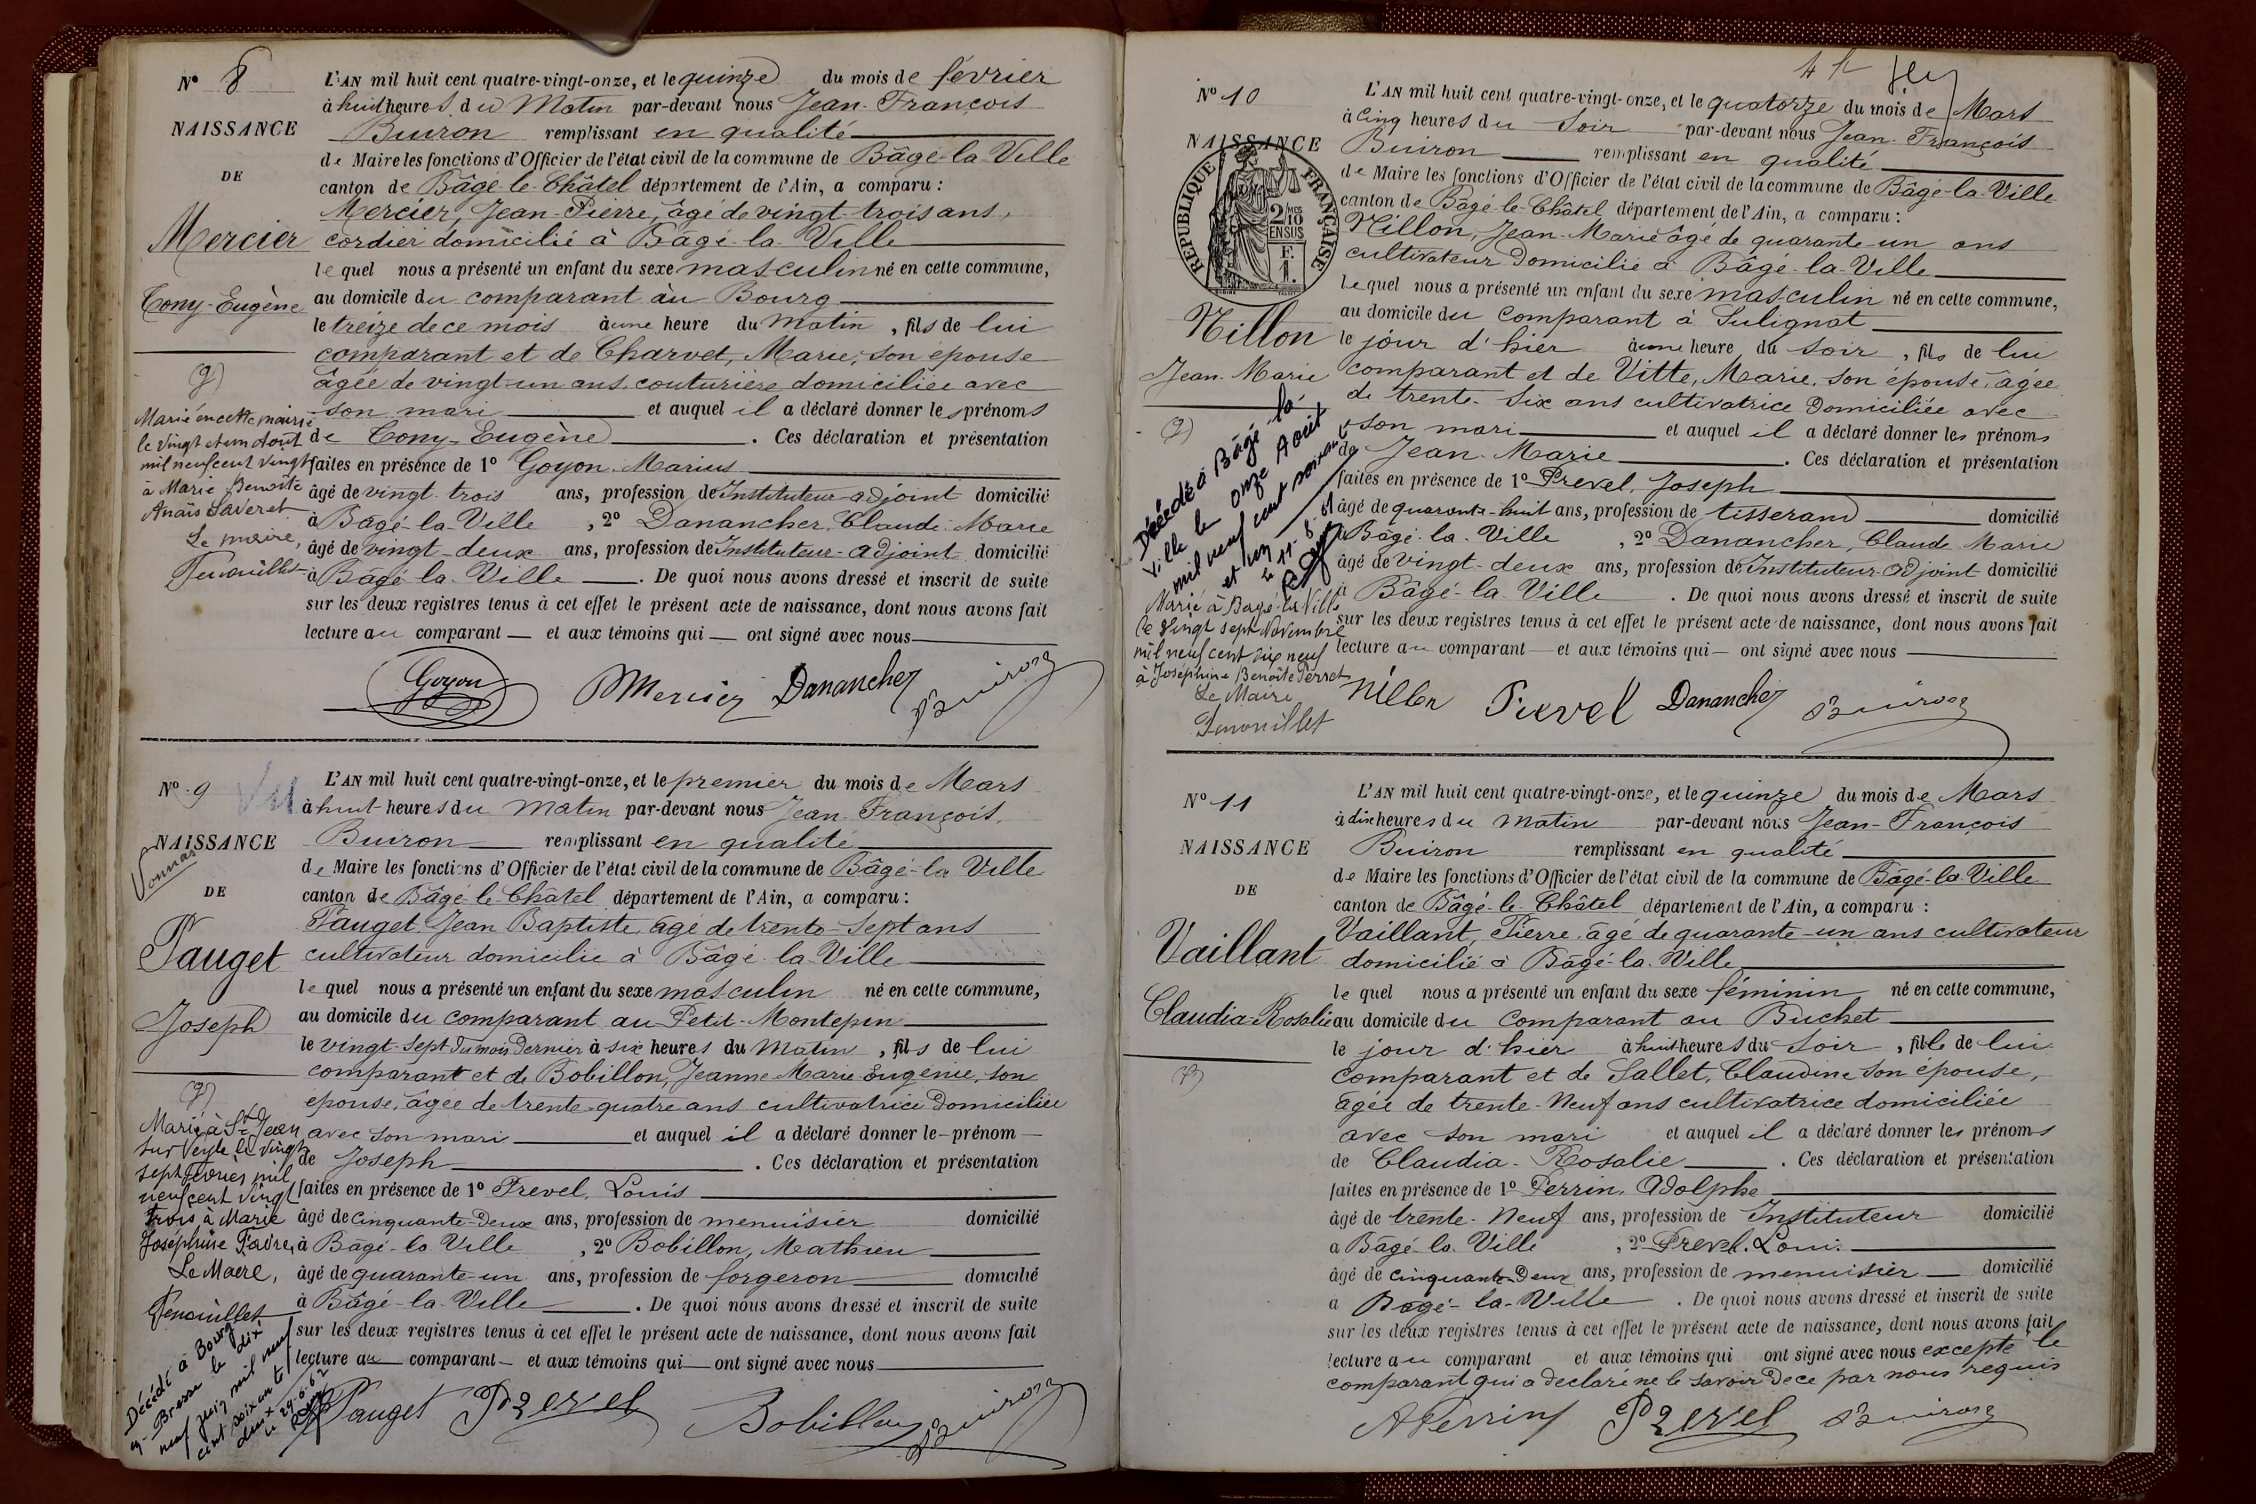 N° 8
NAISSANCE
DE
Mercier
Tony-Eugène
(g)
Marié en cette mairie
le vingt et un août
mil neuf cent vingt
à Marie Benoîte
Anaïs Laveret
Le maire,
L'AN mil huit cent quatre-vingt-onze, et le quinze du mois de février
à huit heures du Matin par-devant nous Jean-François
Buiron remplissant en qualité
de Maire les fonctions d'Officier de l'état civil de la commune de Bâgé-la-Ville
canton de Bâgé-le-Châtel département de l'Ain, a comparu :
Mercier, Jean-Pierre, âgé de vingt-trois ans,
cordier domicilié à Bâgé-la-Ville
lequel nous a présenté un enfant du sexe masculin né en cette commune,
au domicile du comparant au Bourg
le treize de ce mois à une heure du matin, fils de lui
comparant et de Charvet, Marie, son épouse
âgée de vingt-un ans couturière domiciliée avec
son mari et auquel il a déclaré donner les prénoms
de Tony-Eugène. Ces déclaration et présentation
faites en présence de 1° Goyon Marius
âgé de vingt-trois ans, profession de Instituteur-adjoint domicilié
à Bâgé-la-Ville, 2° Danancher, Claude-Marie
âgé de vingt-deux ans, profession de Instituteur-adjoint domicilié
à Bâgé-la-Ville. De quoi nous avons dressé et inscrit de suite
sur les deux registres tenus à cet effet le présent acte de naissance, dont nous avons fait
lecture au comparant et aux témoins qui ont signé avec nous
Goyon Mercier Danancher Buiron
N° 9
Vu
NAISSANCE
Vonnas
DE
Pauget
Joseph
(g)
Marié à St Jean
sur Veyle le vingt
sept février mil
neuf cent vingt
trois à Marie
Joséphine Favre,
Le Maire,
Décédé à Bourg
en-Bresse le dix
neuf juin mil neuf
cent soixante
deux
le 29.6.62
L'AN mil huit cent quatre-vingt-onze, et le premier du mois de Mars
à huit heures du Matin par-devant nous Jean-François
Buiron remplissant en qualité
de Maire les fonctions d'Officier de l'état civil de la commune de Bâgé-la-Ville
canton de Bâgé-le-Châtel département de l'Ain, a comparu :
Pauget Jean Baptiste âgé de trente-sept ans
cultivateur domicilié à Bâgé-la-Ville
lequel nous a présenté un enfant du sexe masculin né en cette commune,
au domicile du comparant au Petit-Montepin
le vingt-sept du mois dernier à six heures du Matin, fils de lui
comparant et de Bobillon, Jeanne Marie Eugénie, son
épouse, âgée de trente-quatre ans cultivatrice domiciliée
avec son mari et auquel il a déclaré donner le prénom
de Joseph. Ces déclaration et présentation
faites en présence de 1° Prevel, Louis
âgé de cinquante-deux ans, profession de menuisier domicilié
à Bâgé-la Ville, 2° Bobillon, Mathieu
âgé de quarante-un ans, profession de forgeron domicilié
à Bâgé-la-Ville. De quoi nous avons dressé et inscrit de suite
sur les deux registres tenus à cet effet le présent acte de naissance, dont nous avons fait
lecture au comparant et aux témoins qui ont signé avec nous
Pauget Prevel Bobillon Buiron
N° 10
NAISSANCE
REPUBLIQUE FRANÇAISE
2/10
EN SUS
F.
1.
Nillon
Jean-Marie
(g)
Décédé à Bâgé-la-
Ville le onze Août
mil neuf cent soixante
et un
le 11-8-61
Marié à Bagé-la Ville
le vingt sept Novembre
mil neuf cent dix neuf
à Joséphine Benoîte Perret
Le Maire
L'AN mil huit cent quatre-vingt-onze, et le quatorze du mois de Mars
à cinq heures du Soir par-devant nous Jean-François
Buiron remplissant en qualité
de Maire les fonctions d'Officier de l'état civil de la commune de Bâgé-la-Ville
canton de Bâgé-le-Châtel département de l'Ain, a comparu :
Nillon, Jean-Marie âgé de quarante-un ans
cultivateur domicilié à Bâgé-la-Ville
lequel nous a présenté un enfant du sexe masculin né en cette commune,
au domicile du comparant à Sulignat
le jour d'hier à une heure du soir, fils de lui
comparant et de Vitte, Marie, son épouse, âgée
de trente-six ans cultivatrice domiciliée avec
son mari et auquel il a déclaré donner les prénoms
de Jean-Marie. Ces déclaration et présentation
faites en présence de 1° Prevel, Joseph
âgé de quarante-huit ans, profession de tisserand domicilié
à Bâgé-la-Ville, 2° Danancher, Claude Marie
âgé de vingt-deux ans, profession de Instituteur-adjoint domicilié
à Bâgé-la-Ville. De quoi nous avons dressé et inscrit de suite
sur les deux registres tenus à cet effet le présent acte de naissance, dont nous avons fait
lecture au comparant et aux témoins qui ont signé avec nous
Nillon Prevel Danancher Buiron
N° 11
NAISSANCE
DE
Vaillant
Claudia-Rosalie
L'AN mil huit cent quatre-vingt-onze, et le quinze du mois de Mars
à dix heures du matin par-devant nous Jean-François
Buiron remplissant en qualité
de Maire les fonctions d'Officier de l'état civil de la commune de Bâgé-la-Ville
canton de Bâgé-le-Châtel département de l'Ain, a comparu :
Vaillant, Pierre, âgé de quarante-un ans cultivateur
domicilié à Bâgé-la-Ville
lequel nous a présenté un enfant du sexe féminin né en cette commune,
au domicile du comparant au Buchet
le jour d'hier à huit heures du Soir, fille de lui
comparant et de Sallet, Claudine son épouse,
âgée de trente-neuf ans cultivatrice domiciliée
avec son mari et auquel il a déclaré donner les prénoms
de Claudia-Rosalie. Ces déclaration et présentation
faites en présence de 1° Perrin, Adolphe
âgé de trente-neuf ans, profession de Instituteur domicilié
à Bâgé-la Ville, 2° Prevel. Louis
âgé de cinquante-deux ans, profession de menuisier domicilié
à Bagé-la-Ville. De quoi nous avons dressé et inscrit de suite
sur les deux registres tenus à cet effet le présent acte de naissance, dont nous avons fait
lecture au comparant et aux témoins qui ont signé avec nous excepté le
comparant qui a déclaré ne le savoir de ce par nous requis
APerrin Prevel Buiron